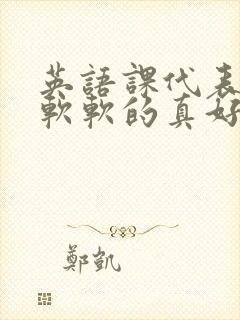 英語課代表
軟軟的真好
鄭凱